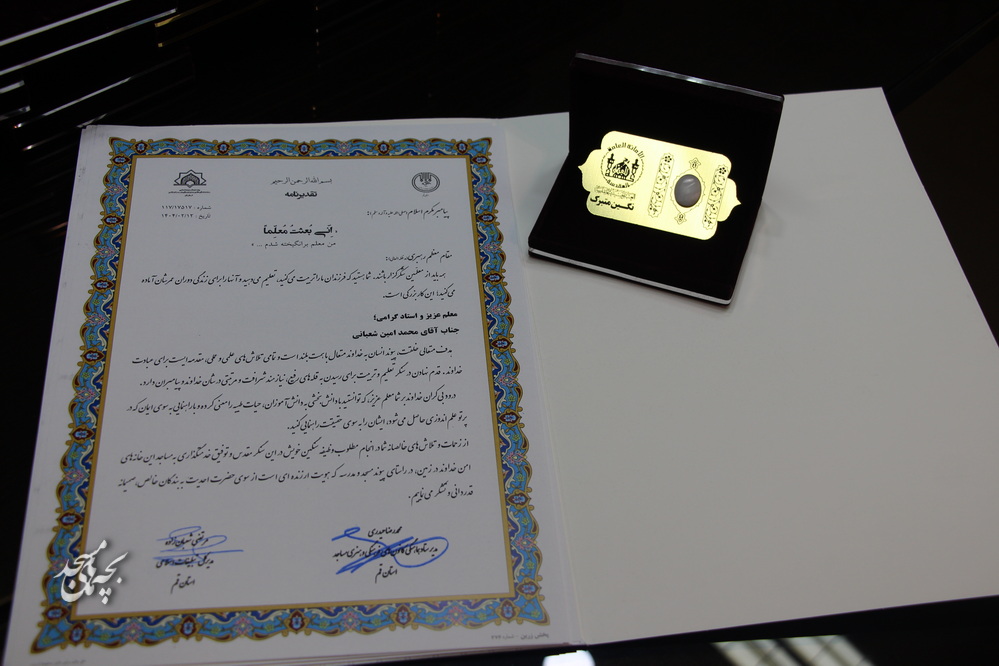 بسم الله الرحمن الرحیم
تقدیرنامه
شماره : ۱۱۷/۱۷۵۱۷
تاریخ : ۱۴۰۲/۰۲/۱۲
پیامبر مکرم اسلام
اِنّی بُعِثتُ مُعَلِّماً
من معلم برانگیخته شدم ... »
مقام معظم رهبری
همه باید از معلمین تشکر گزار باشند. شما هستید که فرزندان ما را تربیت می‌کنید، تعلیم می‌دهید و آنها را برای زندگی دوران عمرشان آماده
می‌کنید؛ این کار بزرگی است.
معلم عزیز و استاد گرامی؛
جناب آقای محمد امین شعبانی
هدف متعالی خلقت، پیوند انسان به خداوند متعال با همت بلند است و تمامی تلاش‌های علمی و عملی، مقدمه ایست برای عبادت
خداوند. قدم نهادن در سنگر تعلیم و تربیت برای رسیدن به قله‌های رفیع، نیازمند شرافت و مرتبتی در شأن خداوند و پیامبران دارد.
درود بی کران خداوند بر شما معلم عزیز، که توانستید با دانش بخشی به دانش آموزان، حیات طیبه را معنی کرده و با راهنمایی به سوی ایمان که در
پرتو علم اندوزی حاصل می‌شود، ایشان را به سوی حقیقت راهنمایی کنید.
از زحمات و تلاش‌های خالصانه شما در انجام مطلوب وظیفه سنگین خویش در این سنگر مقدس و توفیق خدمتگذاری به مساجد این خانه‌های
امن خداوند در زمین، در راستای پیوند مسجد و مدرسه که موهبت ارزنده ای است از سوی حضرت احدیت به بندگان خالص، صمیمانه
قدردانی و تشکر می نمایم.
محمدرضا حیدری
مدیر ستاد هماهنگی کانون‌های فرهنگی و هنری مساجد
استان قم
مرتضی
مدیر کل تبلیغات اسلامی
استان قم
نگین متبرک
بچه های مسجد